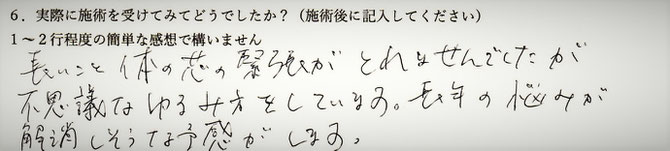 6．実際に施術を受けてみてどうでしたか？（施術後に記入してください）
1～2行程度の簡単な感想で構いません
長いこと体の芯の緊張がとれませんでしたが
不思議なゆるみ方をしています。長年の悩みが
解消しそうな予感がします。